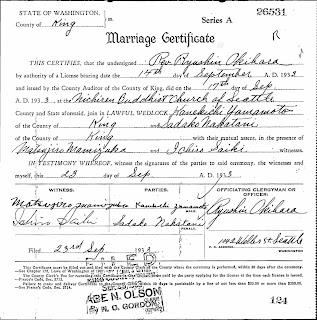 STATE OF WASHINGTON,
County of King
ss.
Series A
26531
R
Marriage Certificate
THIS CERTIFIES, that the undersigned Rev. Ryushin Okihara
by authority of a License bearing date the 14th day of September A. D. 1933
and issued by the County Auditor of the County of King, did on the 17th day of Sep
A. D. 1933 at Nichiren Buddhist Church of Seattle
County and State aforesaid, join in LAWFUL WEDLOCK Kanekichi Yamamoto
of the County of King and Sadako Nakatani
of the County of King with their mutual assent, in the presence
of Matenjero Mamizuka and Ichiro Saiki witnesses.
IN TESTIMONY WHEREOF, witness the signatures of the parties to said ceremony, the witnesses and
myself, this 23 day of Sep A. D. 1933
WITNESS:
PARTIES:
OFFICIATING CLERGYMAN OR OFFICER:
Sadako Nakatani
Ryushin Okihara
Seattle
P. O. ADDRESS
Filed 23rd Sep 1933
FILED
ABE N. OLSON
By N. O. GORDON
This Certificate must be filled out and filed with the County Clerk of the County where the ceremony is performed, within 30 days after the ceremony.
124